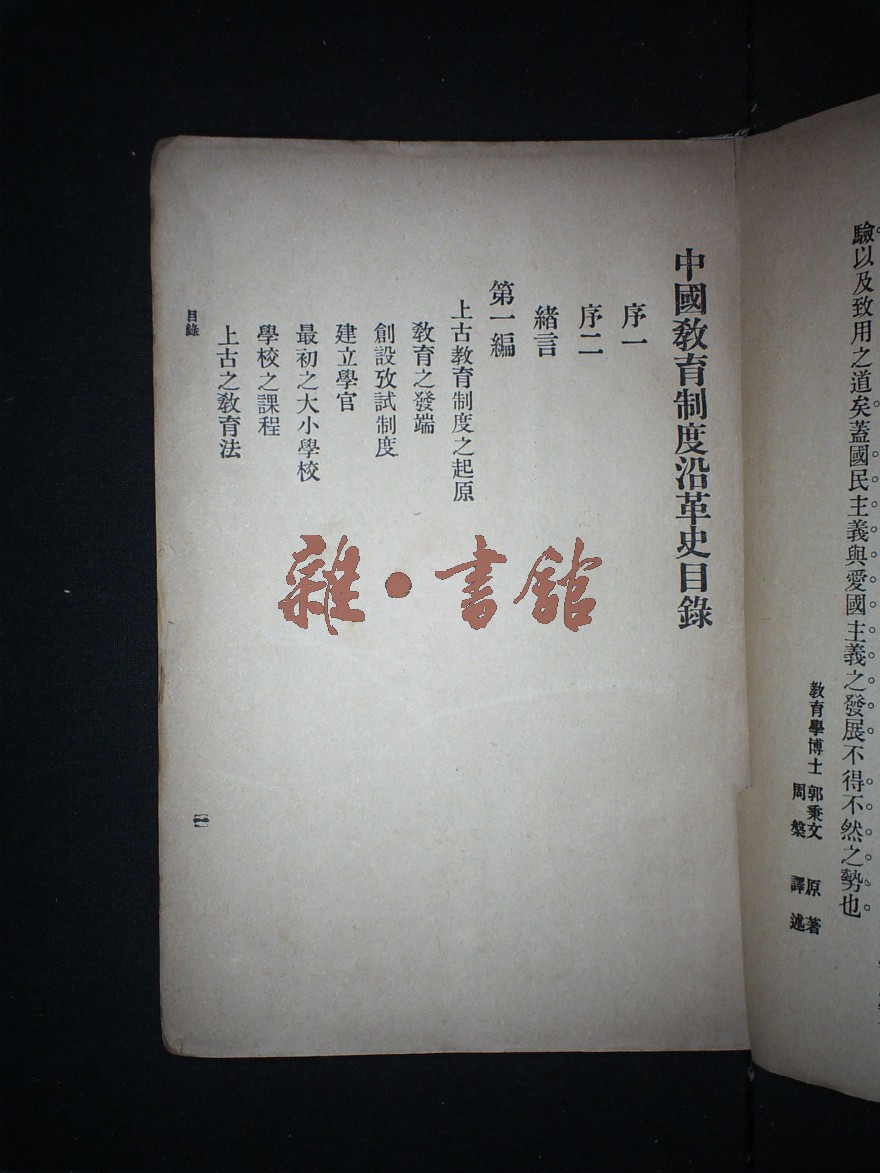 驗以及致用之道矣蓋國民主義與愛國主義之發展不得不然之勢也
教育學博士郭秉文 原著
周槃 譯述
中國教育制度沿革史目錄
序一
序二
緒言
第一編
上古教育制度之起原
教育之發端
創設攷試制度
建立學官
最初之大小學校
學校之課程
上古之教育法
目錄
一
雜·書館